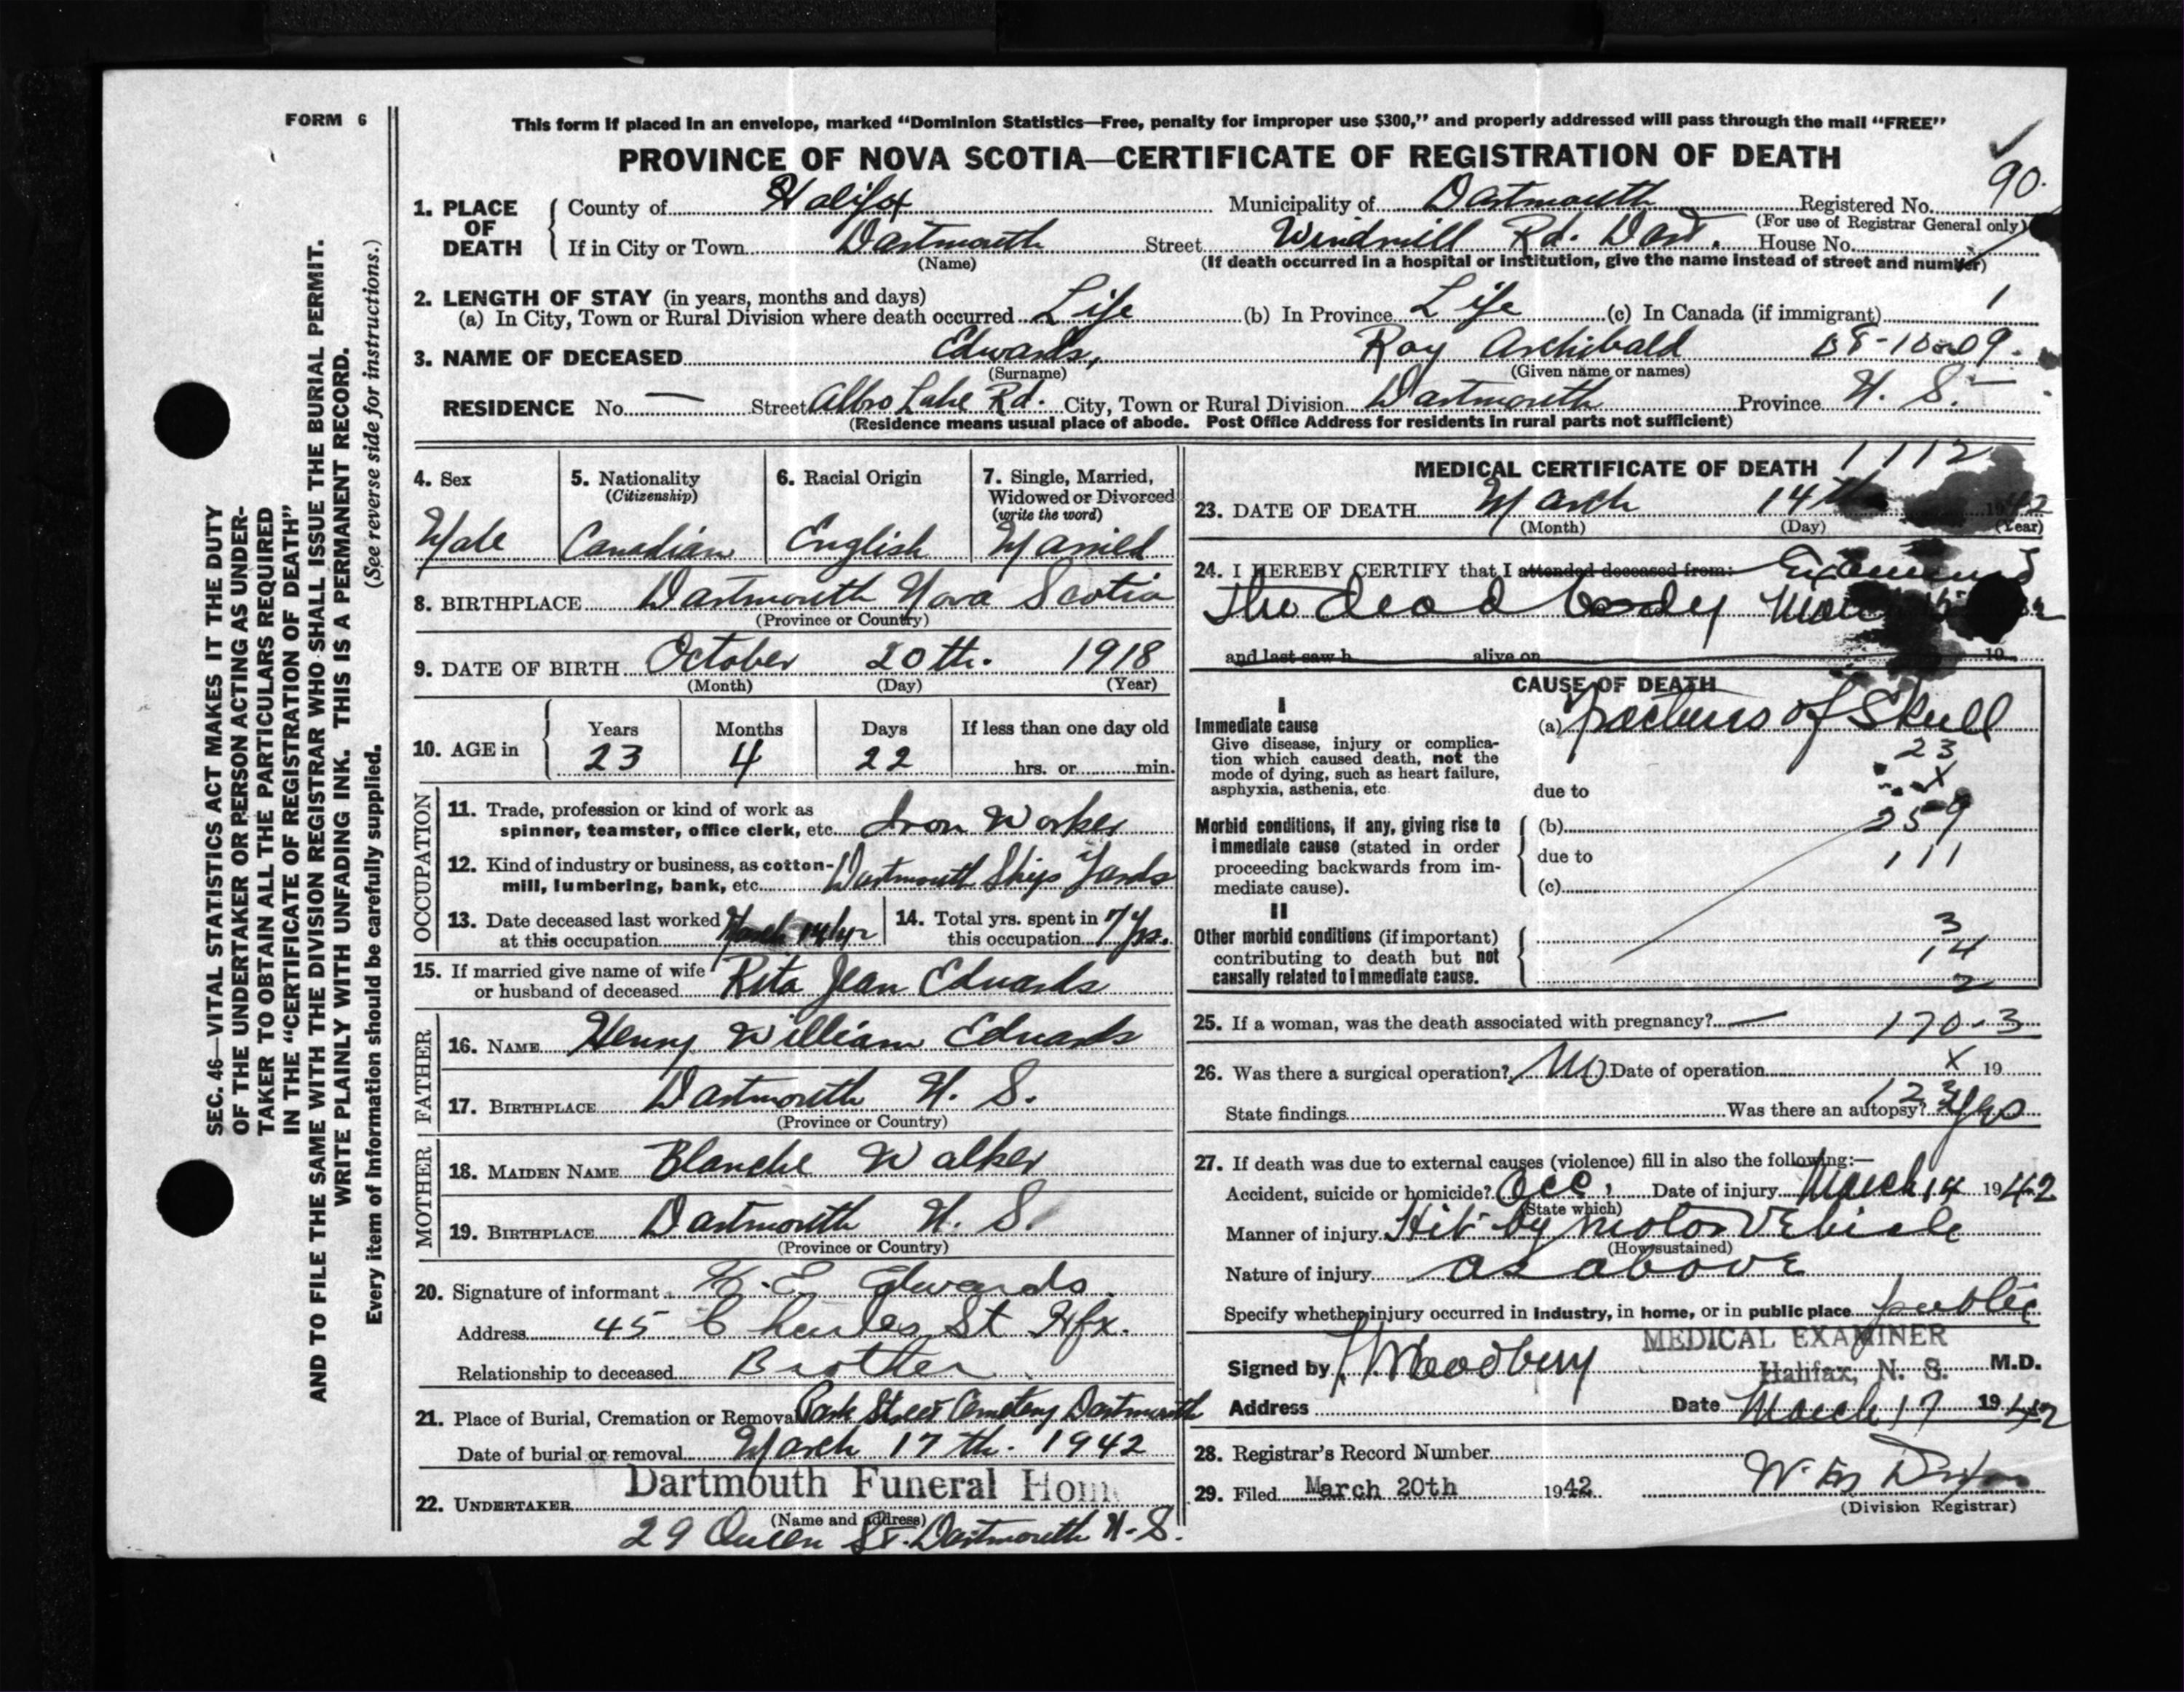 FORM 6
SEC. 46—VITAL STATISTICS ACT MAKES IT THE DUTY
OF THE UNDERTAKER OR PERSON ACTING AS UNDER-
TAKER TO OBTAIN ALL THE PARTICULARS REQUIRED
IN THE "CERTIFICATE OF REGISTRATION OF DEATH"
AND TO FILE THE SAME WITH THE DIVISION REGISTRAR WHO SHALL ISSUE THE BURIAL PERMIT.
WRITE PLAINLY WITH UNFADING INK. THIS IS A PERMANENT RECORD.
Every item of information should be carefully supplied. (See reverse side for instructions.)
This form if placed in an envelope, marked "Dominion Statistics—Free, penalty for improper use $300," and properly addressed will pass through the mail "FREE"
PROVINCE OF NOVA SCOTIA—CERTIFICATE OF REGISTRATION OF DEATH
1. PLACE OF DEATH County of Halifax Municipality of Dartmouth Registered No. 90.
(For use of Registrar General only)
If in City or Town Dartmouth Street Windmill Rd. Dart. House No.
(Name) (If death occurred in a hospital or institution, give the name instead of street and number)
2. LENGTH OF STAY (in years, months and days)
(a) In City, Town or Rural Division where death occurred Life (b) In Province Life (c) In Canada (if immigrant) 1
3. NAME OF DECEASED Edwards, Roy Archibald
(Surname) (Given name or names)
RESIDENCE No. — Street Albro Lake Rd. City, Town or Rural Division Dartmouth Province N. S.
(Residence means usual place of abode. Post Office Address for residents in rural parts not sufficient)
4. Sex 5. Nationality 6. Racial Origin 7. Single, Married,
(Citizenship) Widowed or Divorced
(write the word)
Male Canadian English Married
8. BIRTHPLACE Dartmouth Nova Scotia
(Province or Country)
9. DATE OF BIRTH October 20th. 1918
(Month) (Day) (Year)
10. AGE in Years Months Days If less than one day old
23 4 22 hrs. or min.
OCCUPATION
11. Trade, profession or kind of work as
spinner, teamster, office clerk, etc. Iron Worker
12. Kind of industry or business, as cotton-
mill, lumbering, bank, etc. Dartmouth Ships Yards
13. Date deceased last worked
at this occupation March 14/42
14. Total yrs. spent in
this occupation 7 Yrs.
15. If married give name of wife
or husband of deceased Rita Jean Edwards
FATHER
16. NAME Henry William Edwards
17. BIRTHPLACE Dartmouth N. S.
(Province or Country)
MOTHER
18. MAIDEN NAME Blanche Walker
19. BIRTHPLACE Dartmouth N. S.
(Province or Country)
20. Signature of informant E. Edwards
Address 45 Charles St Hfx.
Relationship to deceased Brother
21. Place of Burial, Cremation or Removal Park Street Cemetery Dartmouth
Date of burial or removal March 17th. 1942
22. UNDERTAKER Dartmouth Funeral Home
(Name and address)
29 Queen St. Dartmouth N. S.
MEDICAL CERTIFICATE OF DEATH 1112
23. DATE OF DEATH March 14th 1942
(Month) (Day) (Year)
24. I HEREBY CERTIFY that I attended deceased from: Examined
the dead body
and last saw h alive on 19
CAUSE OF DEATH
I
Immediate cause (a) Fractures of Skull
Give disease, injury or complica-
tion which caused death, not the
mode of dying, such as heart failure,
asphyxia, asthenia, etc
23
X
due to
Morbid conditions, if any, giving rise to (b) 259
immediate cause (stated in order due to 111
proceeding backwards from im-
mediate cause). (c)
II
Other morbid conditions (if important) 3
contributing to death but not 14
causally related to immediate cause. 2
25. If a woman, was the death associated with pregnancy? — 170-3
26. Was there a surgical operation? No Date of operation X 19
State findings Was there an autopsy? Yes
27. If death was due to external causes (violence) fill in also the following:—
Accident, suicide or homicide? Acc. Date of injury March 14 1942
(State which)
Manner of injury Hit by motor vehicle
(How sustained)
Nature of injury as above
Specify whether injury occurred in industry, in home, or in public place public
MEDICAL EXAMINER
Signed by Woodbury Halifax, N. S. M.D.
Address Date March 17 1942
28. Registrar's Record Number
29. Filed March 20th 1942
(Division Registrar)